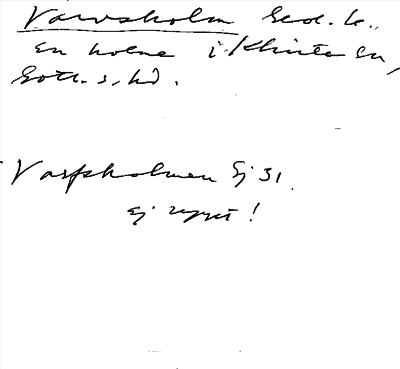 Varvsholm Geod. k.,
en holme i Klinte sn,
Gotl. s. hd.
Varfsholmen Ej 31.
Ej uppt!